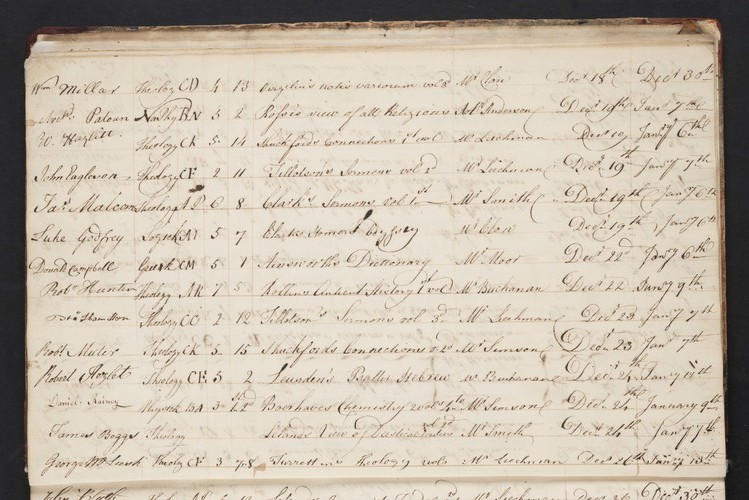 Wm Millar Theology CD 4 13 notis variorum vol Mr Clow Decr 18th Decr 30th
Paloun Nat Phy BN 5 2 Ross's view of all Religions Mr Anderson Decr 19th Janry 7th
W. Hazlitt Theology CK 5 14 Shuckfords Connections 1st vol Mr Leechman Decr 19 Janry 6th
John Eagleson Theology CF 2 11 Tillotson's Sermons vol 2d Mr Leechman Decr 19th Janry 7th
Jas Malcom Theology 6 8 Clark's Sermons vol 1st Mr Smith Decr 19th Janry 6th
Luke Godfrey Logick 5 7 Clarks Homers Odyssey Mr Clow Decr 19th Janry 6th
Donald Campbell Greek CM 5 1 Ainsworths Dictionary Mr Moor Decr 22d Janry 6th
Robt Hunter Theology AK 7 5 Rollins Antient History 1st vol Mr Buchanan Decr 22 Janry 9th
Hamilton Theology CC 2 12 Tillotsons Sermons vol 3d Mr Leechman Decr 23 Janry 7th
Robt Muter Theology CK 5 15 Shuckfords Connections v 2d Mr Simson Decr 23 Janry 7th
Robert Theology CE 5 2 Leusden's Hebrew Mr Buchanan Decr 24th Janry
Daniel Rainey BA 3 Boerhaves Chemistry 2 vols 4to Mr Simson Decr 24 January 9th
James Boggs Theology Lelands View of Deistical Mr Smith Decr 24th Janry 7th
George Theology CF 3 7.8 Turrettins Theology vols Mr Leechman Decr 26th Janry 13th